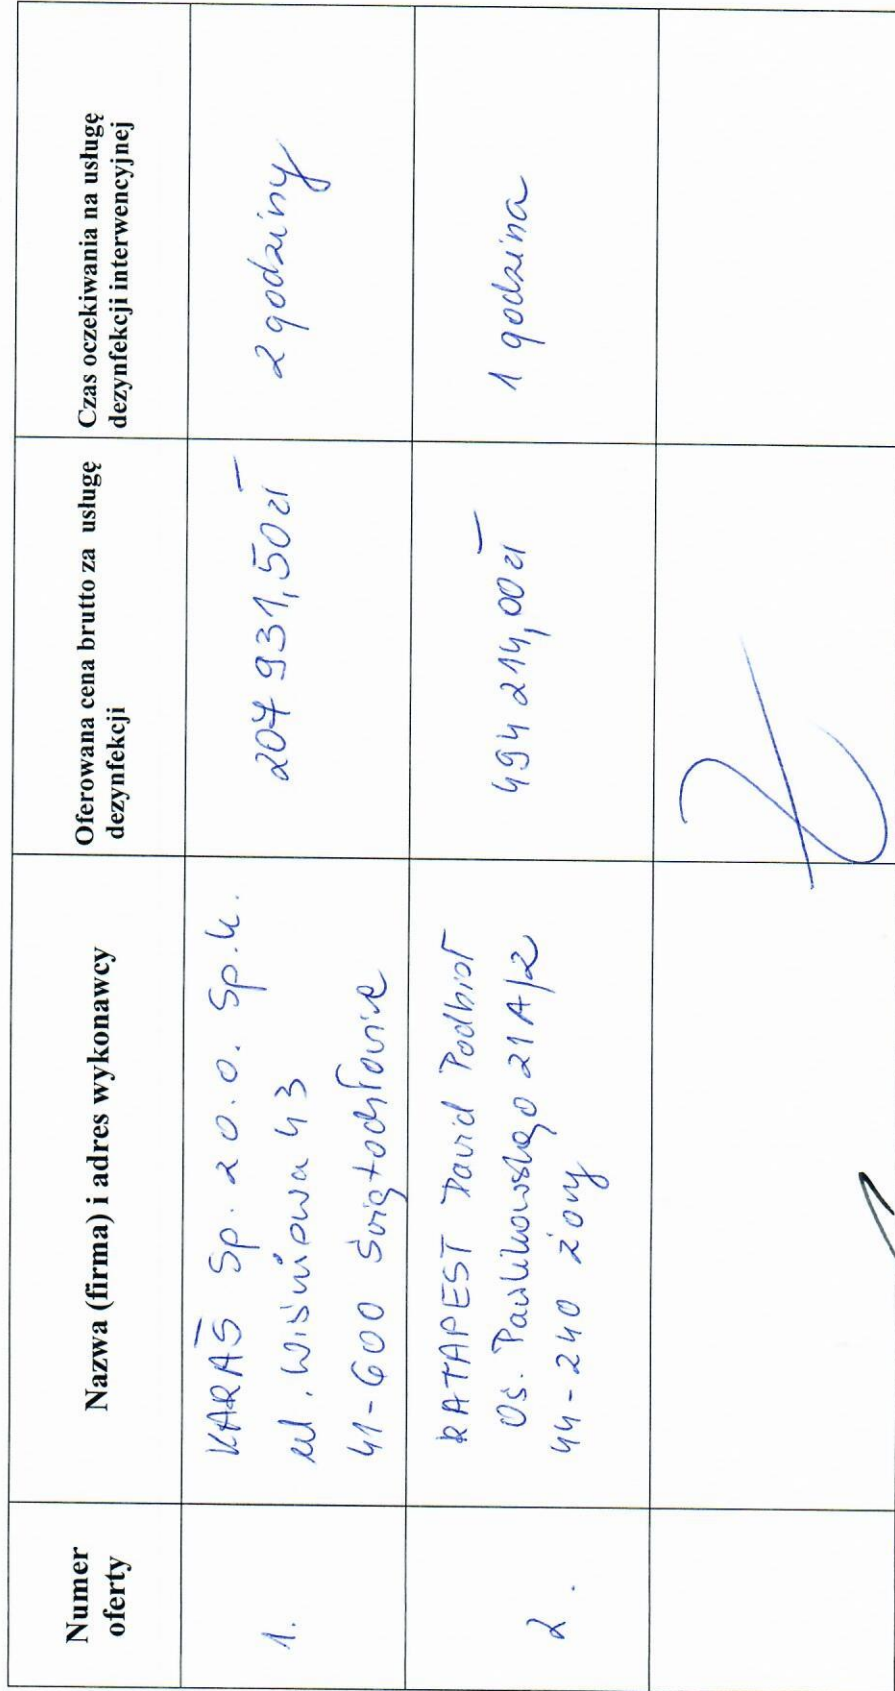 Numer
oferty
Nazwa (firma) i adres wykonawcy
Oferowana cena brutto za usługę
dezynfekcji
Czas oczekiwania na usługę
dezynfekcji interwencyjnej
1.
KARAŚ Sp. z o.o. Sp.k.
ul. Wiśniowa 43
41-600 Świętochłowice
207 931,50 zł
2 godziny
2.
RATAPEST Dawid Podbioł
Os. Pawlikowskiego 21A/2
44-240 Żory
494 214,00 zł
1 godzina